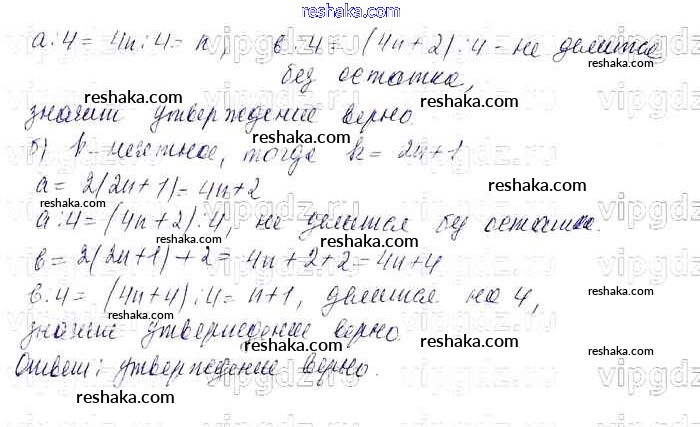 reshaka.com
a:4 = 4n:4 = n, в:4 = (4n+2):4 - не делится
без остатка,
reshaka.com
reshaka.com
reshaka.com
значит утверждение верно.
б) k - нечетное, тогда k = 2n+1
reshaka.com
a = 2(2n+1) = 4n+2
reshaka.com
reshaka.com
a:4 = (4n+2):4, не делится без остатка.
reshaka.com
reshaka.com
в = 2(2n+1)+2 = 4n+2+2 = 4n+4
reshaka.com
в:4 = (4n+4):4 = n+1, делится на 4,
reshaka.com
reshaka.com
значит утверждение верно.
reshaka.com
reshaka.com
Ответ: утверждение верно.
reshaka.com
reshaka.com
vipgdz.ru